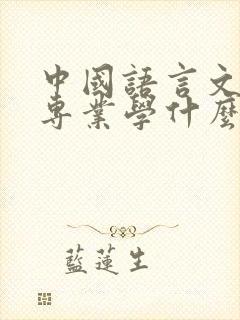 中國語言文
專業學什麼
藍蓮生